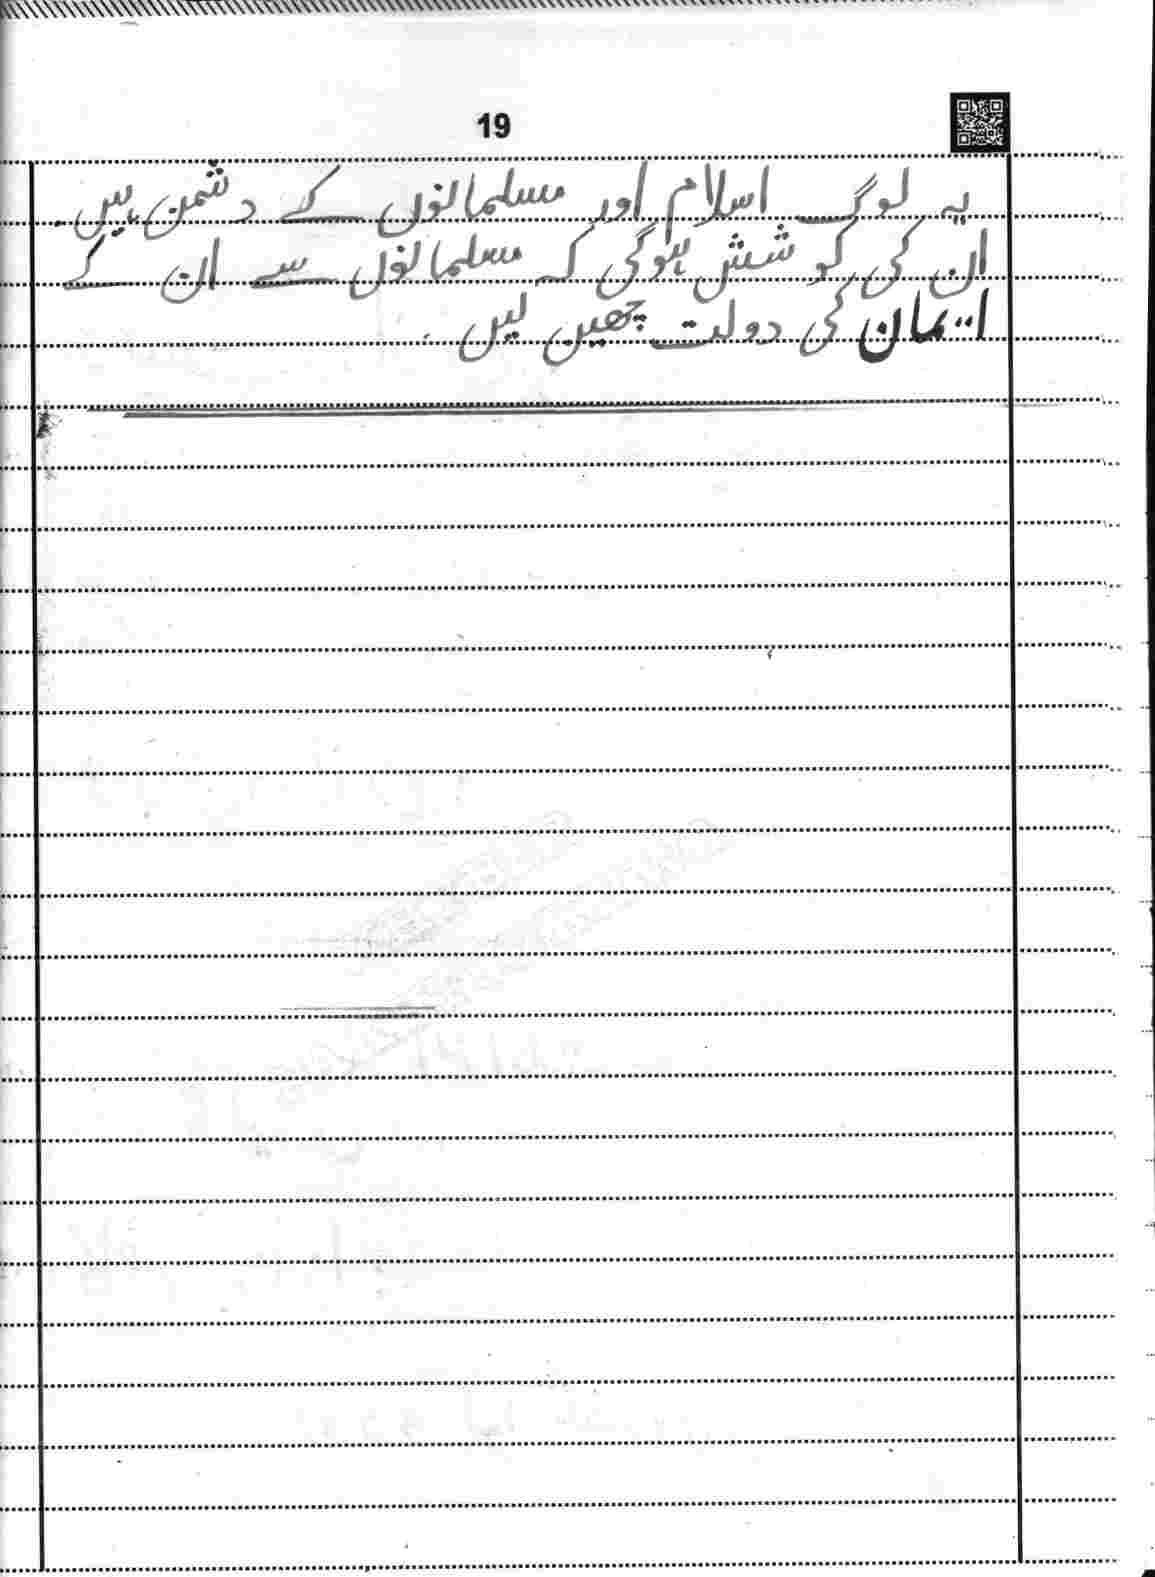 19
یہ لوگ اسلام اور مسلمانوں کے دشمن ہیں۔
ان کی کوشش ہوگی کہ مسلمانوں سے ان کے
ایمان کی دولت چھین لیں۔